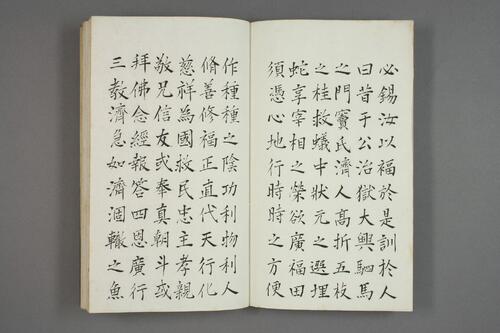 必錫汝以福於是訓於人
曰昔于公治獄大興駟馬
之門竇氏濟人高折五枝
之桂救蟻中狀元之選埋
蛇享宰相之榮欲廣福田
須憑心地行時時之方便
作種種之陰功利物利人
脩善修福正直代天行化
慈祥為國救民忠主孝親
敬兄信友或奉真朝斗或
拜佛念經報答四恩廣行
三教濟急如濟涸轍之魚